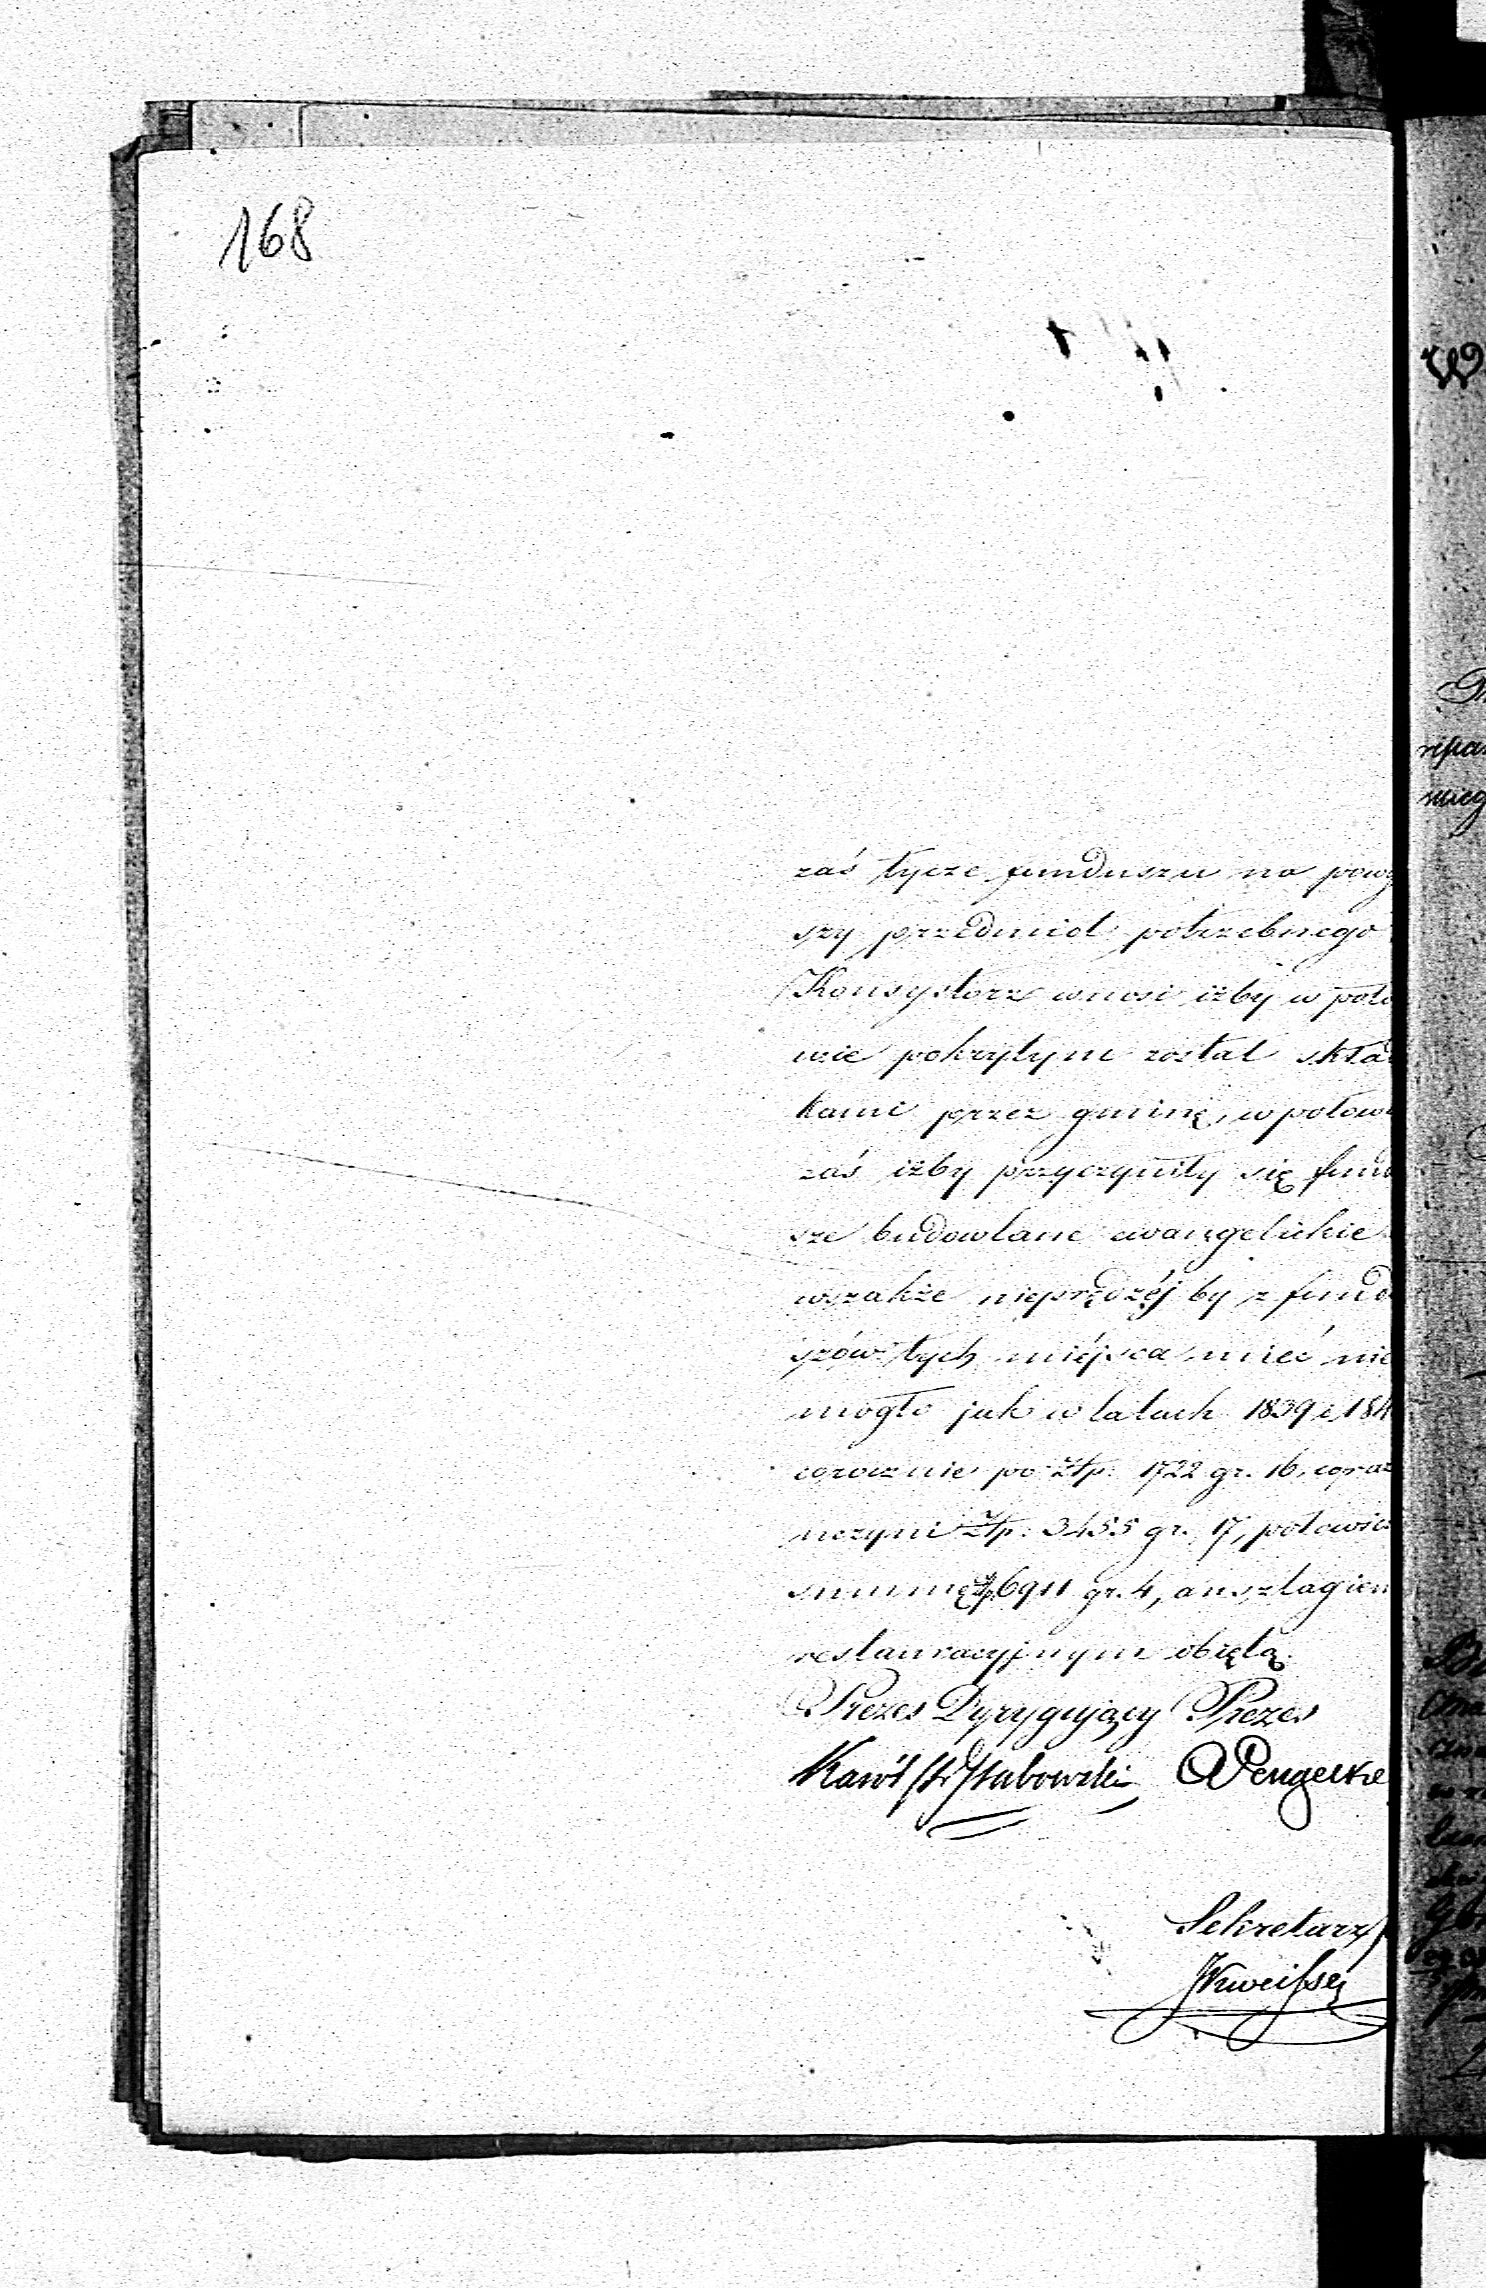 168
zaś tycze funduszu na powy
szy przedmiot potrzebnego
Konsystorz wnosi iżby w poło
wie pokrytym został skład
kami przez gminę, w połowi
zaś iżby przyczyniły się fund
sze budowlane ewangelickie
wszakże nieprędzéj by z fund
szów tych miéjsca mieć nie
mogło jak w latach 1839 i 184
corocznie po Złp: 1722 gr. 16, co raz
uczyni Złp: 3455 gr. 17, połowic
summę Złp 6911 gr. 4, anszlagiem
restauracyjnym objętą.
Prezes Dyrygujący Prezes
Karól
Sekretarz